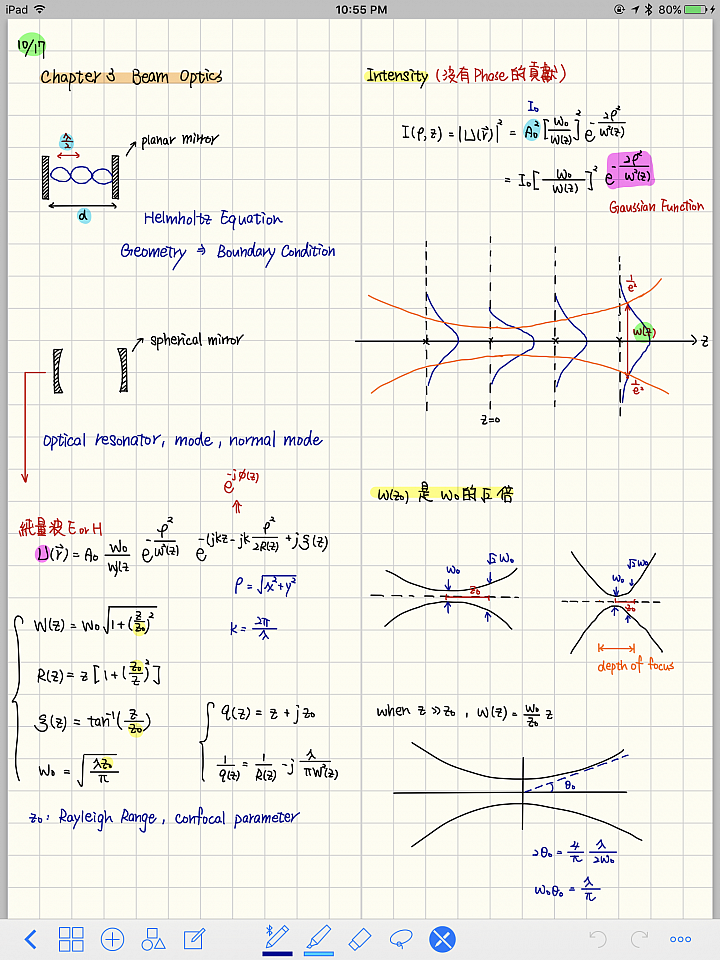 iPad
10:55 PM
80%
10/17
Chapter 3 Beam Optics
λ/2
planar mirror
d
Helmholtz Equation
Geometry ⇒ Boundary Condition
spherical mirror
optical resonator, mode, normal mode
e^{-jϕ(z)}
⇑
純量波 E or H
U(r⃗) = A₀ W₀/W(z) e^{-ρ²/W²(z)} e^{-(jkz-jk ρ²/2R(z) + jξ(z)}
ρ = √(x²+y²)
k = 2π/λ
W(z) = W₀ √(1+(z/z₀)²)
R(z) = z [1+(z₀/z)²]
ξ(z) = tan⁻¹(z/z₀)
W₀ = √(λz₀/π)
q(z) = z + jz₀
1/q(z) = 1/R(z) - j λ/πW²(z)
z₀: Rayleigh Range, confocal parameter
Intensity (沒有 Phase 的貢獻)
I₀
I(ρ,z) = |U(r⃗)|² = A₀² [W₀/W(z)]² e^{-2ρ²/W²(z)}
= I₀ [W₀/W(z)]² e^{-2ρ²/W²(z)}
Gaussian Function
1/e²
W(z)
z
1/e²
z=0
W(z₀) 是 W₀ 的 √2 倍
W₀
√2 W₀
z₀
W₀
√2 W₀
z₀
depth of focus
when z ≫ z₀, W(z) = W₀/z₀ z
θ₀
2θ₀ = 4/π λ/2W₀
W₀θ₀ = λ/π